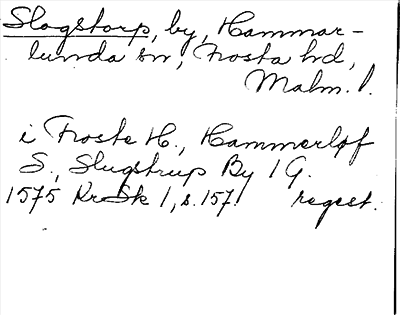 Slogstorp, by, Hammar-
lunda sn, Frosta hd,
Malm. l.
i Froste H., Hammerlöf
S., Slugstrup By 1 G.
1575 KrSk 1, s. 157. regest.